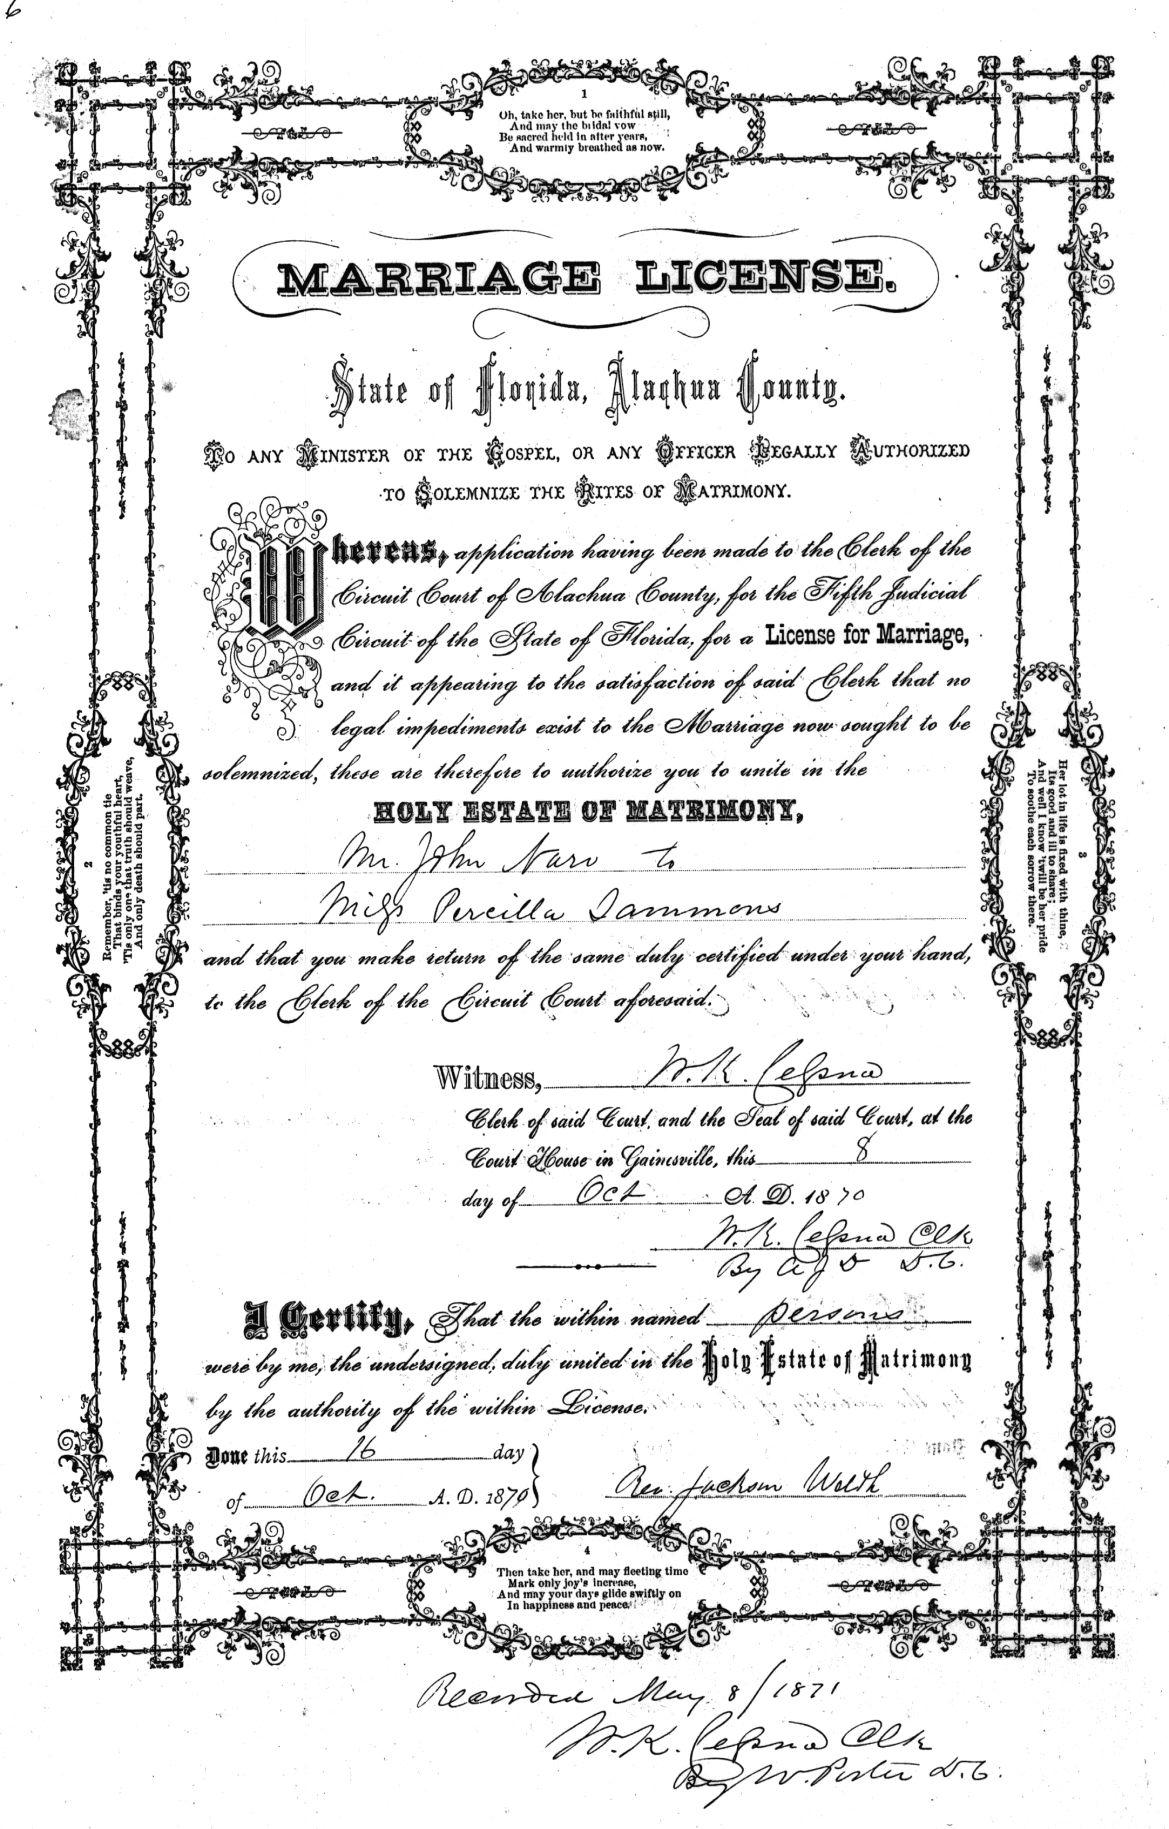 6
1
Oh, take her, but be faithful still,
And may the bridal vow
Be sacred held in after years,
And warmly breathed as now.
MARRIAGE LICENSE.
State of Florida, Alachua County.
TO ANY MINISTER OF THE GOSPEL, OR ANY OFFICER LEGALLY AUTHORIZED
TO SOLEMNIZE THE RITES OF MATRIMONY.
Whereas, application having been made to the Clerk of the
Circuit Court of Alachua County, for the Fifth Judicial
Circuit of the State of Florida, for a License for Marriage,
and it appearing to the satisfaction of said Clerk that no
legal impediments exist to the Marriage now sought to be
solemnized, these are therefore to authorize you to unite in the
HOLY ESTATE OF MATRIMONY,
Mr. John Naro to
Miss Percilla Sammons
and that you make return of the same duly certified under your hand,
to the Clerk of the Circuit Court aforesaid.
2
Remember, 'tis no common tie
That binds your youthful heart,
'Tis only one that truth should weave,
And only death should part.
3
Her lot in life is fixed with thine,
Its good and ill to share;
And well I know 'twill be her pride
To soothe each sorrow there.
Witness, W. K. Cessna
Clerk of said Court, and the Seal of said Court, at the
Court House in Gainesville, this 8
day of Oct A. D. 1870
W. K. Cessna Clk
By A J D D. C.
I Certify, That the within named persons
were by me, the undersigned, duly united in the Holy Estate of Matrimony
by the authority of the within License.
Done this 16 day
of Oct. A. D. 1870
Rev. Jackson Welth
4
Then take her, and may fleeting time
Mark only joy's increase,
And may your days glide swiftly on
In happiness and peace.
Recorded May 8/1871
W. K. Cessna Clk
By W. Porter D. C.